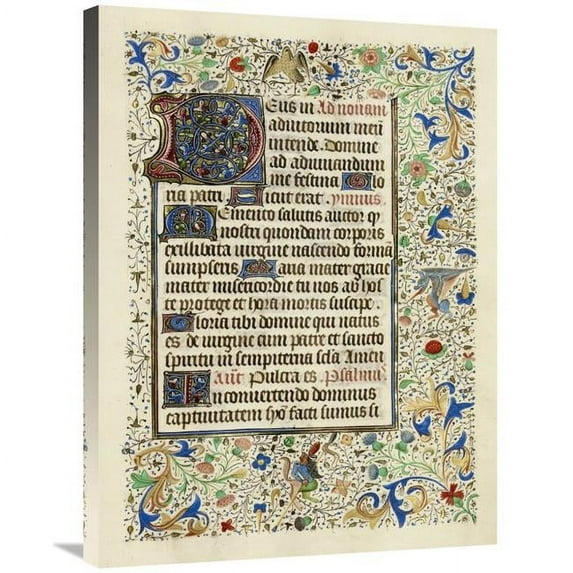 Deus in Ad nonam
adiutorium meū
intende. Domine
ad adiuuandum
me festina Glo
ria patri. Sicut erat. ymnus.
Memento salutis auctor q̄
nostri quondam corporis
ex illibata uirgine nascendo formā
sumpseris Maria mater gracie
mater misericordie tu nos ab hos
te protege et hora mortis suscipe
Gloria tibi domine qui natus
es de uirgine cum patre et sancto
spiritu in sempiterna sc̄la Amen
Añ Pulcra es. Psalmus
In conuertendo dominus
captiuitatem syō facti sumus si